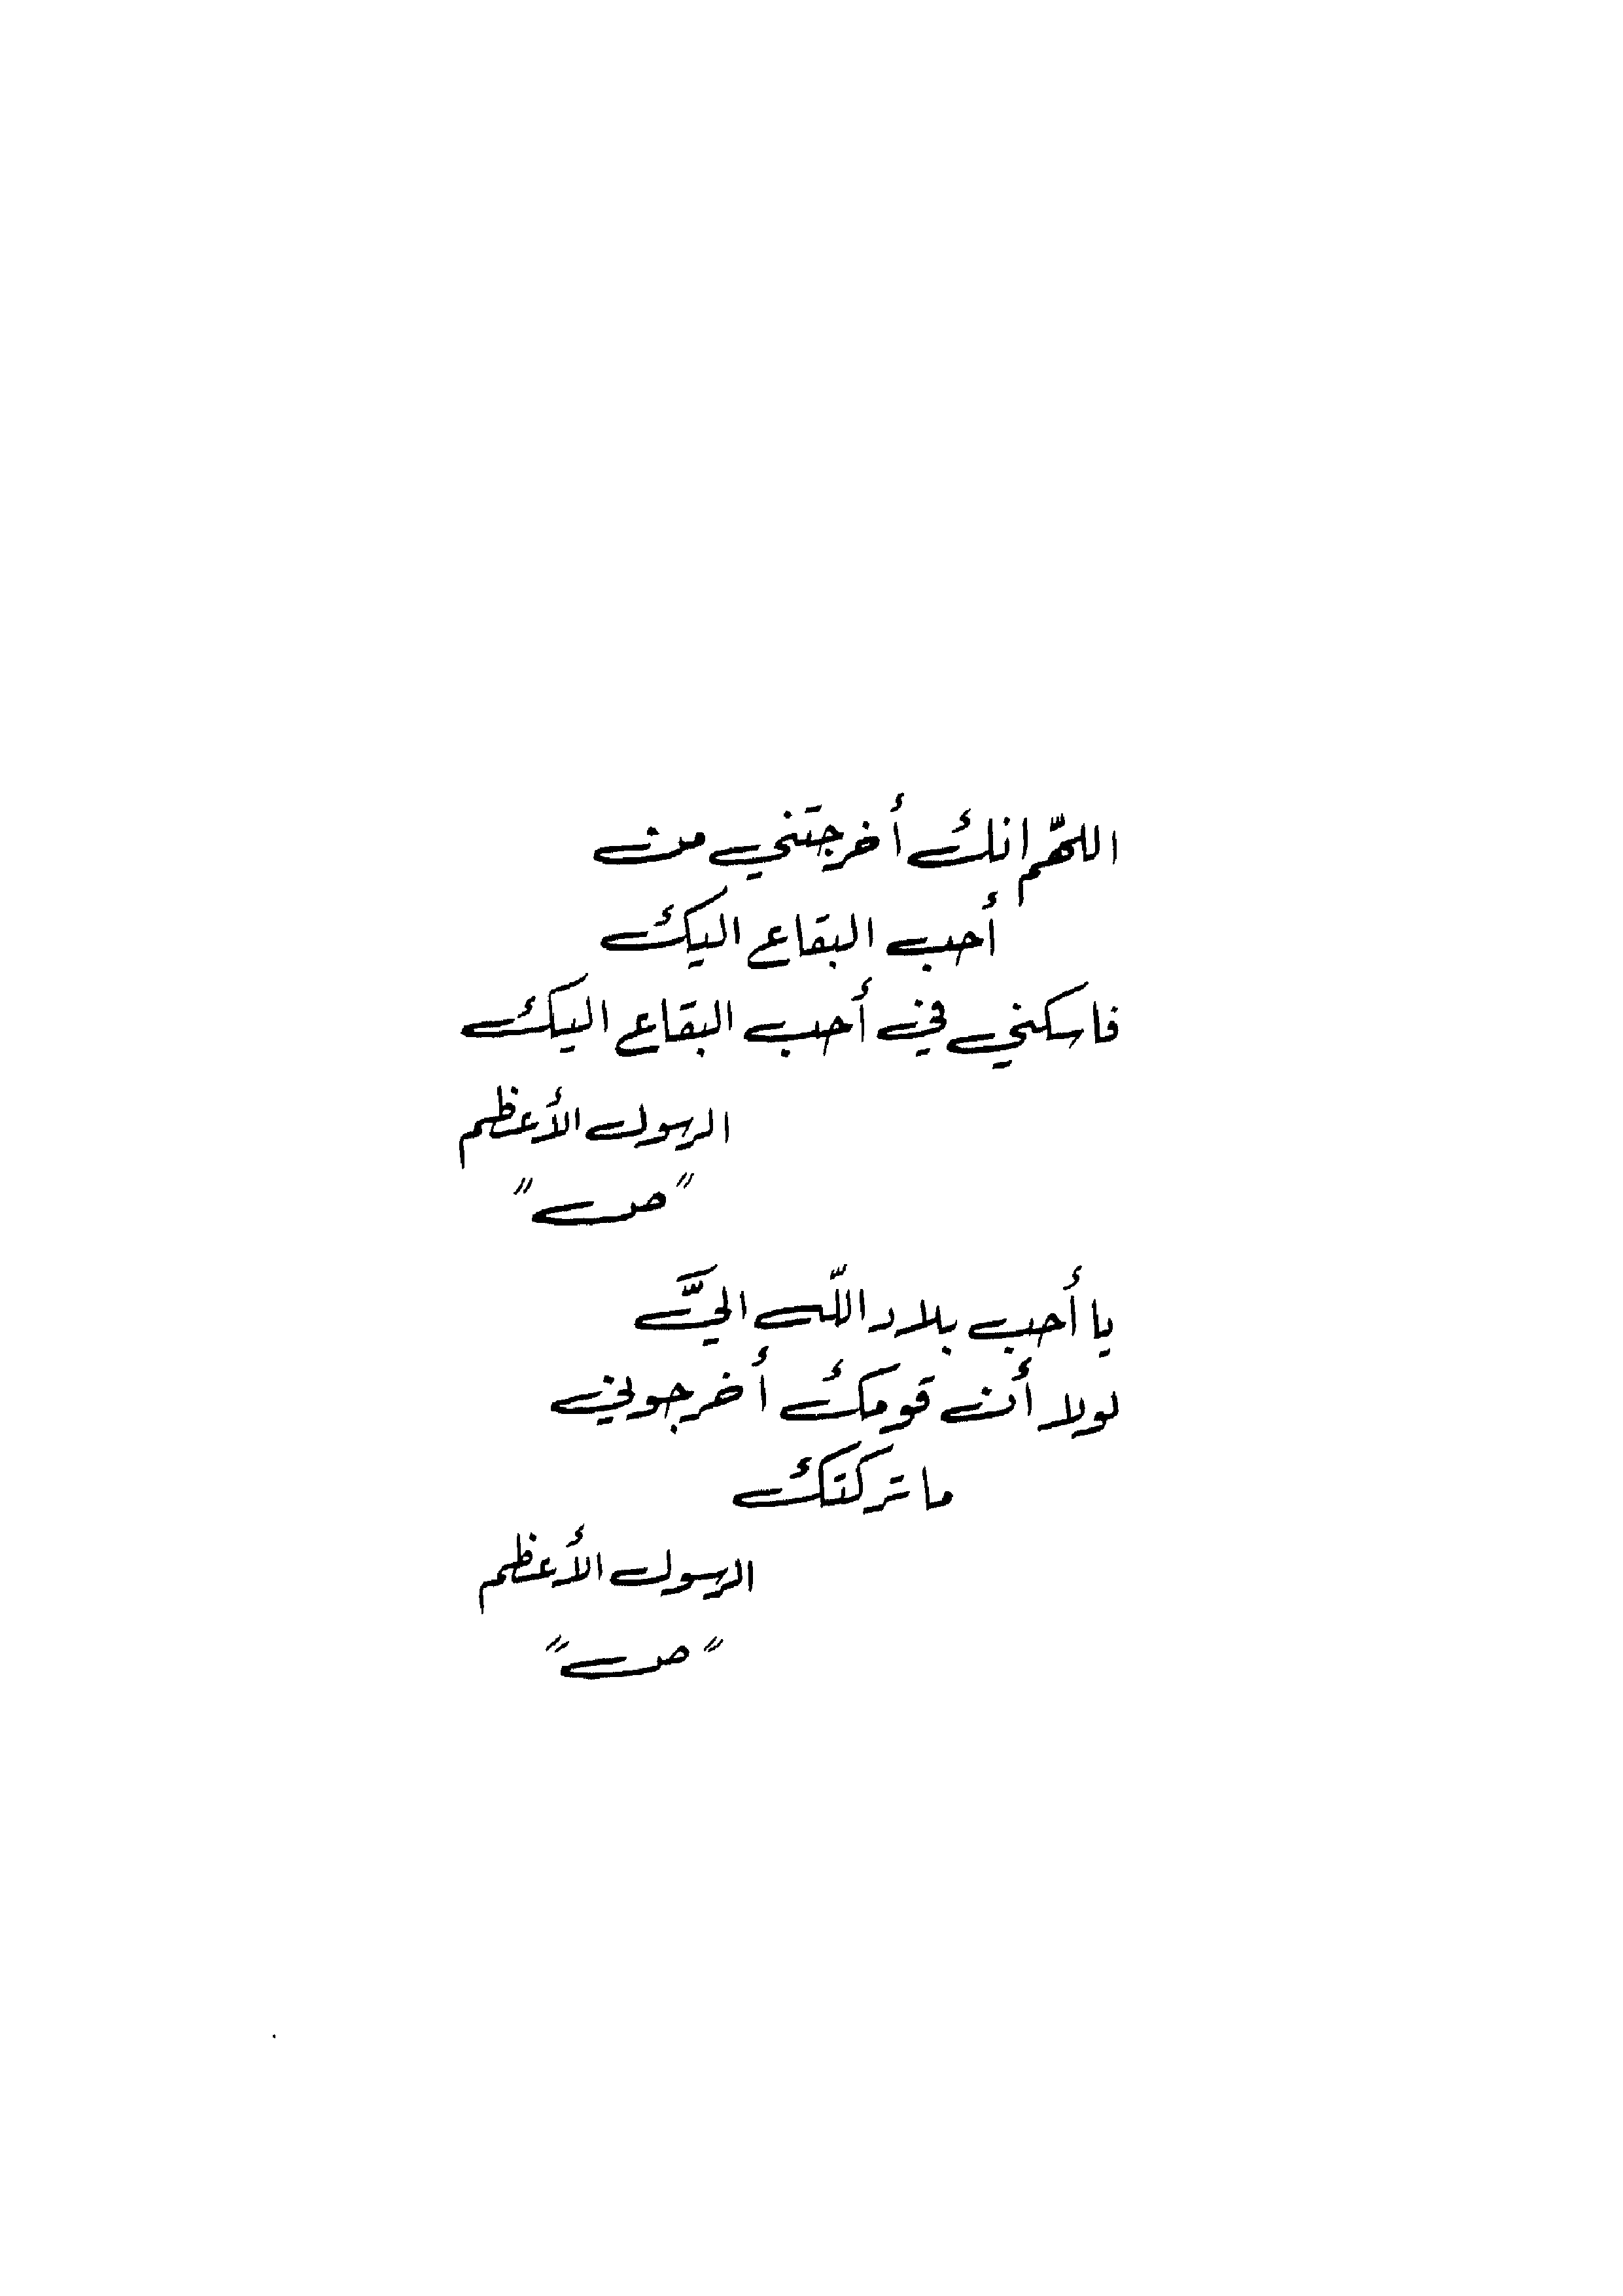 اللهّم انك أخرجتني من
أحب البقاع اليك
فاسكني في أحب البقاع اليك
الرسول الأعظم
"ص"
يا أحب بلاد اللّه اليَّ
لولا أن قومك أخرجوني
ما تركتك
الرسول الأعظم
"ص"